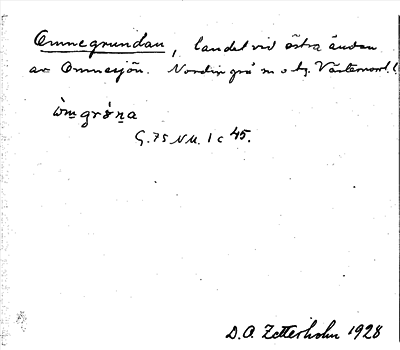 Omnegrundan, landet vid östra ändan
av Omnesjön. Nordingrå sn o tg. Västernorrl. l
òm̲grǿn̲a
G. 75 NM. 1 c 45.
D. O. Zetterholm 1928